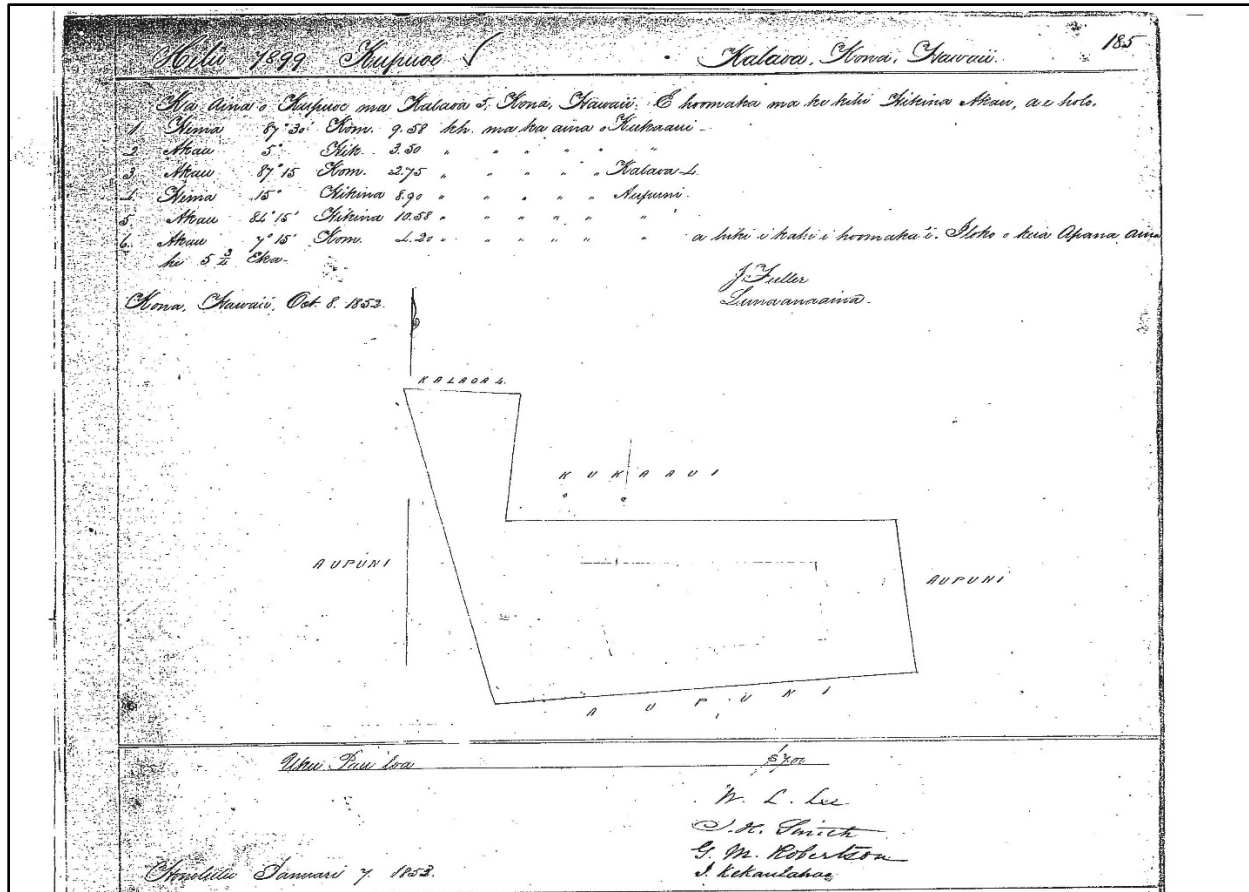 Helu 1899 Kupuoe Kalaoa, Kona, Hawaii. 185
Ka Aina o Kupuoe ma Kalaoa 5, Kona, Hawaii. E hoomaka ma ke kihi Hikina Akau, a e holo.
1. Hema 87° 30' Kom. 9.58 kh. ma ka aina o Kukaaui
2. Akau 5° Hik. 3.50 " " " " " "
3. Akau 87° 15 Kom. 2.75 " " " " " Kalaoa 4.
4. Hema 15° Hikina 8.90 " " " " " Aupuni.
5. Akau 84° 15' Hikina 10.58 " " " " " "
6. Akau 7° 15' Kom. 4.20 " " " " " " a hiki i kahi i hoomaka'i. Iloko o keia Apana Aina
he 5 3/4 Eka
J. Fuller
Lunaanaaina.
Kona, Hawaii, Oct. 8. 1852.
KALAOA 4.
KUKAAUI
AUPUNI
AUPUNI
AUPUNI
Uku Pau Loa $7.00
W. L. Lee
J. H. Smith
G. M. Robertson
J. Kekaulahao
Honolulu Januari 7. 1853.